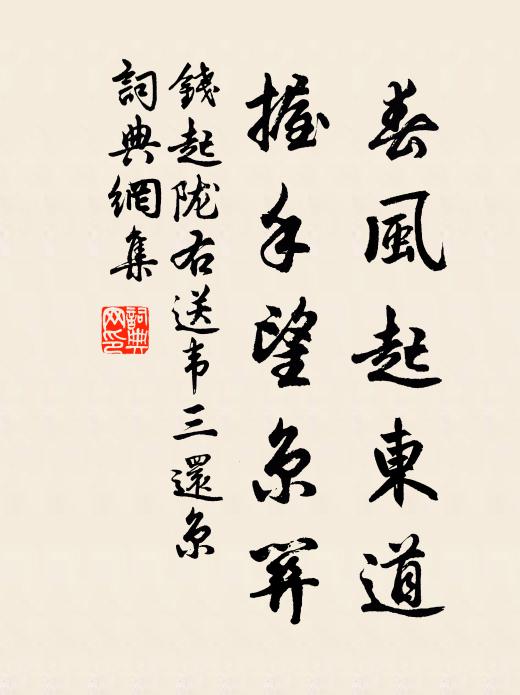 春風起東道
握手望京關
錢起陇右送韦三還京
詞典網集
詞典
网印